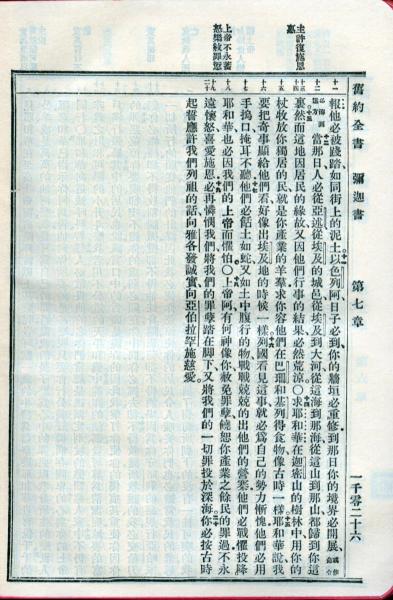 舊約全書 彌迦書 第七章 一千零二十六
主許復施恩惠
上帝不永蓄怒樂赦罪愆
報他必被踐踏如同街上的泥土○以色列阿日子必到你的牆垣必重修到那日你的境界必開展或作命令
必傳到遠方當那日人必從亞述從埃及的城邑從埃及到大河從這海到那海從這山到那山都歸到你這
裏然而這地因居民的緣故又因他們行事的結果必然荒涼○求耶和華在迦密山的樹林中用你的
杖牧放你獨居的民就是你產業的羊羣求你容他們在巴珊和基列得食物像古時一樣耶和華說我
要把奇事顯給他們看好像出埃及地的時候一樣列國看見這事就必爲自己的勢力慚愧他們必用
手摀口掩耳不聽他們必餂土如蛇又如土中腹行的物戰戰兢兢的出他們的營寨他們必戰懼投降
耶和華也必因我們的上帝而懼怕○上帝阿有何神像你赦免罪孽饒恕你產業之餘民的罪過不永
遠懷怒喜愛施恩必再憐憫我們將我們的罪孽踏在脚下又將我們的一切罪投於深海你必按古時
起誓應許我們列祖的話向雅各發誠實向亞伯拉罕施慈愛。